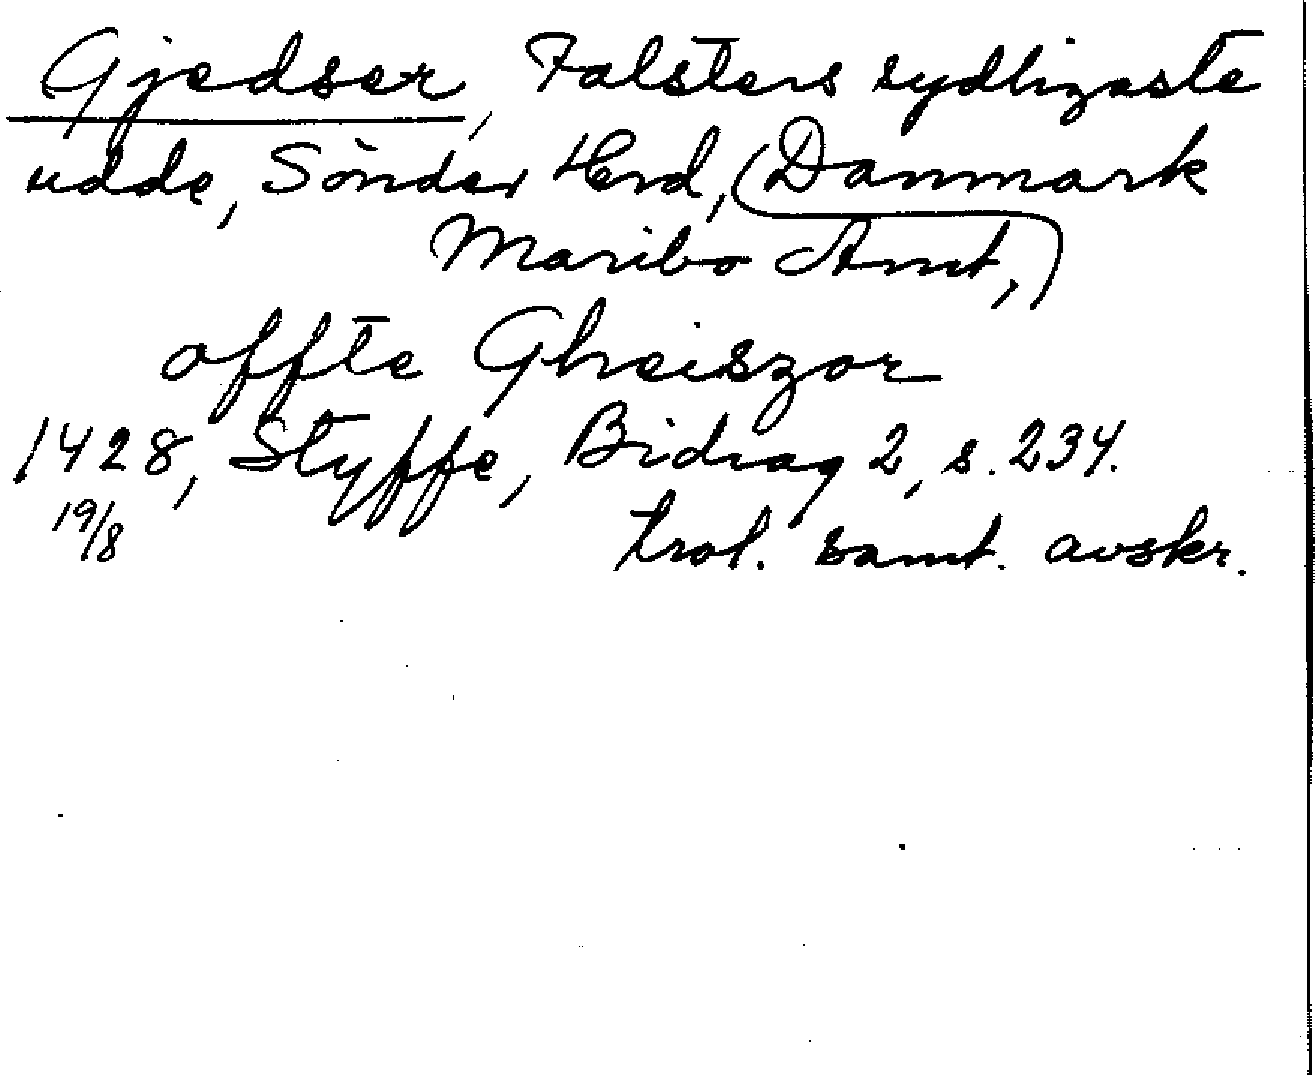 Gjedser, Falsters sydligaste
udde, Sönder Herd, (Danmark
Maribo Amt,)
offte Gheiszor
1428, Styffe, Bidrag 2, s. 234.
19/8 trol. samt. avskr.